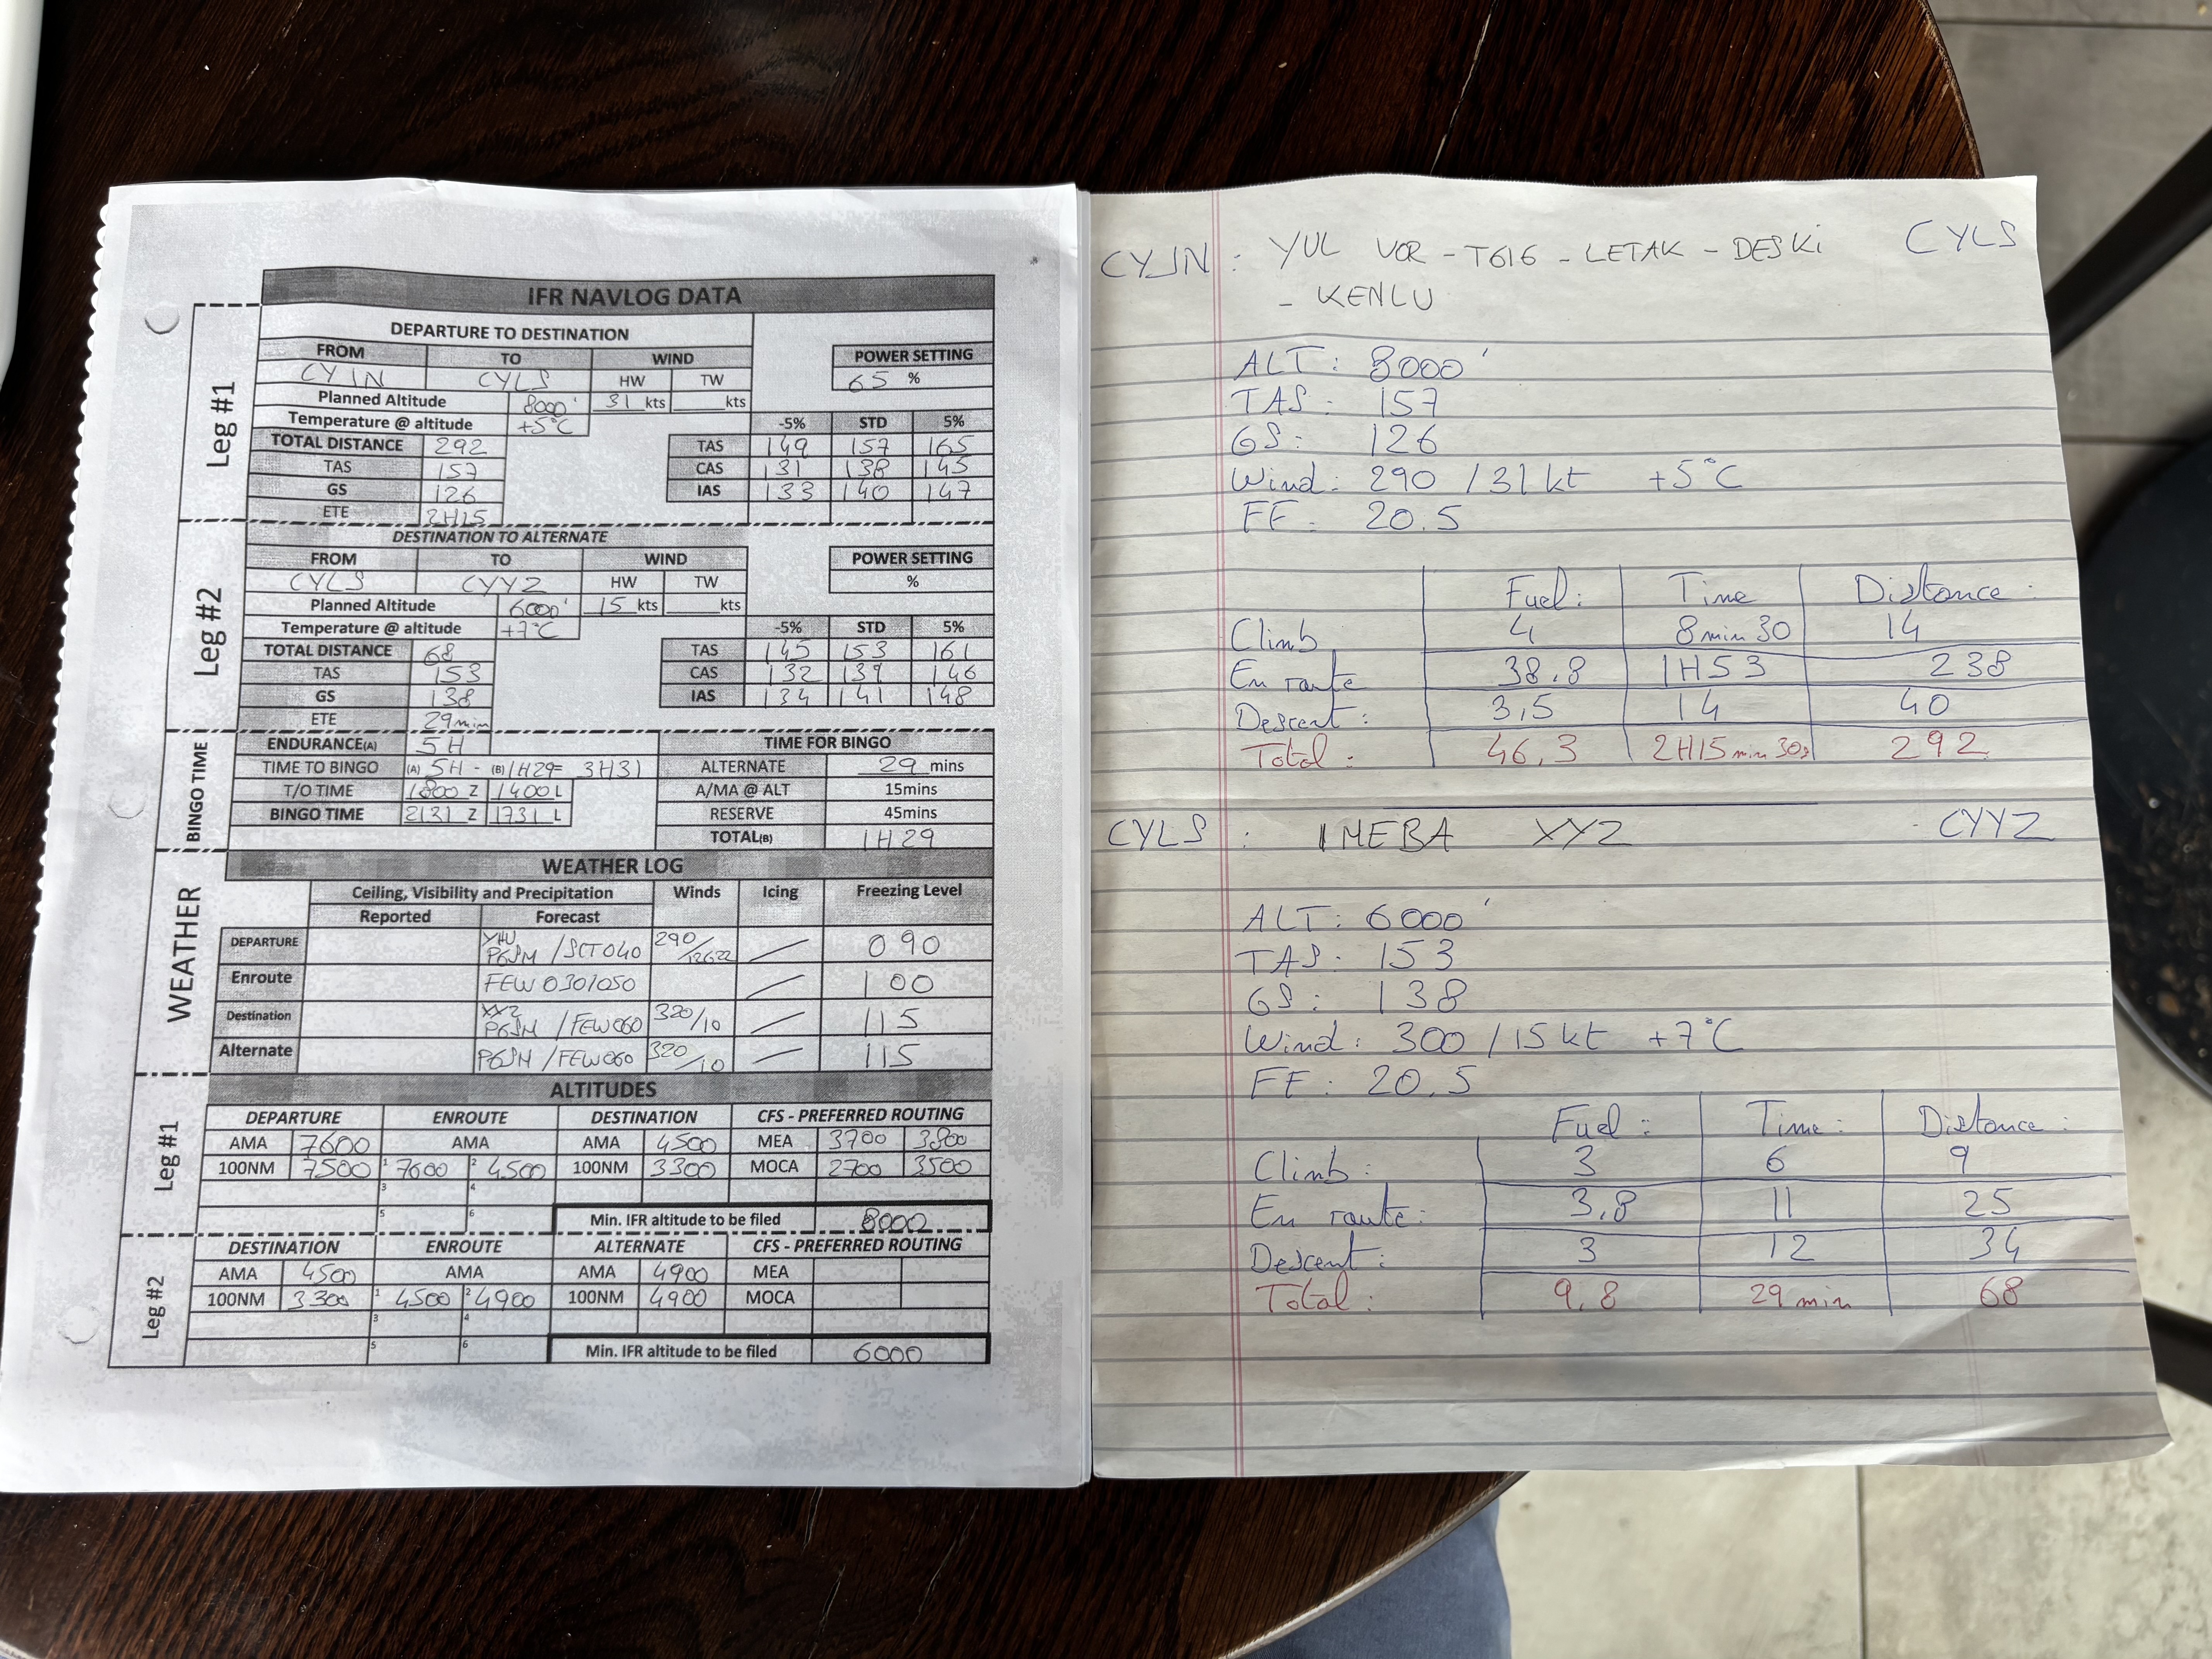 IFR NAVLOG DATA
Leg #1
DEPARTURE TO DESTINATION
FROM TO WIND POWER SETTING
CYJN CYLS HW TW 65 %
Planned Altitude 8000' 31 kts kts
Temperature @ altitude +5°C -5% STD 5%
TOTAL DISTANCE 292 TAS 149 157 165
TAS 157 CAS 131 138 145
GS 126 IAS 133 140 147
ETE 2H15
Leg #2
DESTINATION TO ALTERNATE
FROM TO WIND POWER SETTING
CYLS CYYZ HW TW %
Planned Altitude 6000' 15 kts kts
Temperature @ altitude +7°C -5% STD 5%
TOTAL DISTANCE 68 TAS 145 153 161
TAS 153 CAS 132 139 146
GS 138 IAS 134 141 148
ETE 29min
BINGO TIME
ENDURANCE(A) 5H TIME FOR BINGO
TIME TO BINGO (A) 5H - (B) 1H29= 3H31 ALTERNATE 29 mins
T/O TIME 1800 Z 1400 L A/MA @ ALT 15mins
BINGO TIME 2131 Z 1731 L RESERVE 45mins
TOTAL(B) 1H29
WEATHER
WEATHER LOG
Ceiling, Visibility and Precipitation Winds Icing Freezing Level
Reported Forecast
DEPARTURE YHU P6SM /SCT040 290/12G22 / 090
Enroute FEW 030/050 / 100
Destination P6SM /FEW060 320/10 / 115
Alternate P6SM /FEW060 320/10 / 115
Leg #1
ALTITUDES
DEPARTURE ENROUTE DESTINATION CFS - PREFERRED ROUTING
AMA 7600 AMA AMA 4500 MEA 3700 3800
100NM 7500 1 7600 2 4500 100NM 3300 MOCA 2700 3500
3 4
5 6 Min. IFR altitude to be filed 8000
Leg #2
DESTINATION ENROUTE ALTERNATE CFS - PREFERRED ROUTING
AMA 4500 AMA AMA 4900 MEA
100NM 3300 1 4500 2 4900 100NM 4900 MOCA
3 4
5 6 Min. IFR altitude to be filed 6000
CYJN : YUL VOR - T616 - LETAK - DESKI CYLS
- KENLU
ALT : 8000'
TAS : 157
GS : 126
Wind : 290 / 31 kt +5°C
FF : 20.5
Fuel : Time Distance :
Climb 4 8min 30 14
En route 38.8 1H53 238
Descent : 3,5 14 40
Total : 46,3 2H15min 30s 292
CYLS : IMEBA XYZ - CYYZ
ALT : 6000'
TAS : 153
GS : 138
Wind : 300 / 15 kt +7°C
FF : 20.5
Fuel : Time : Distance :
Climb : 3 6 9
En route : 3,8 11 25
Descent : 3 12 34
Total : 9,8 29 min 68